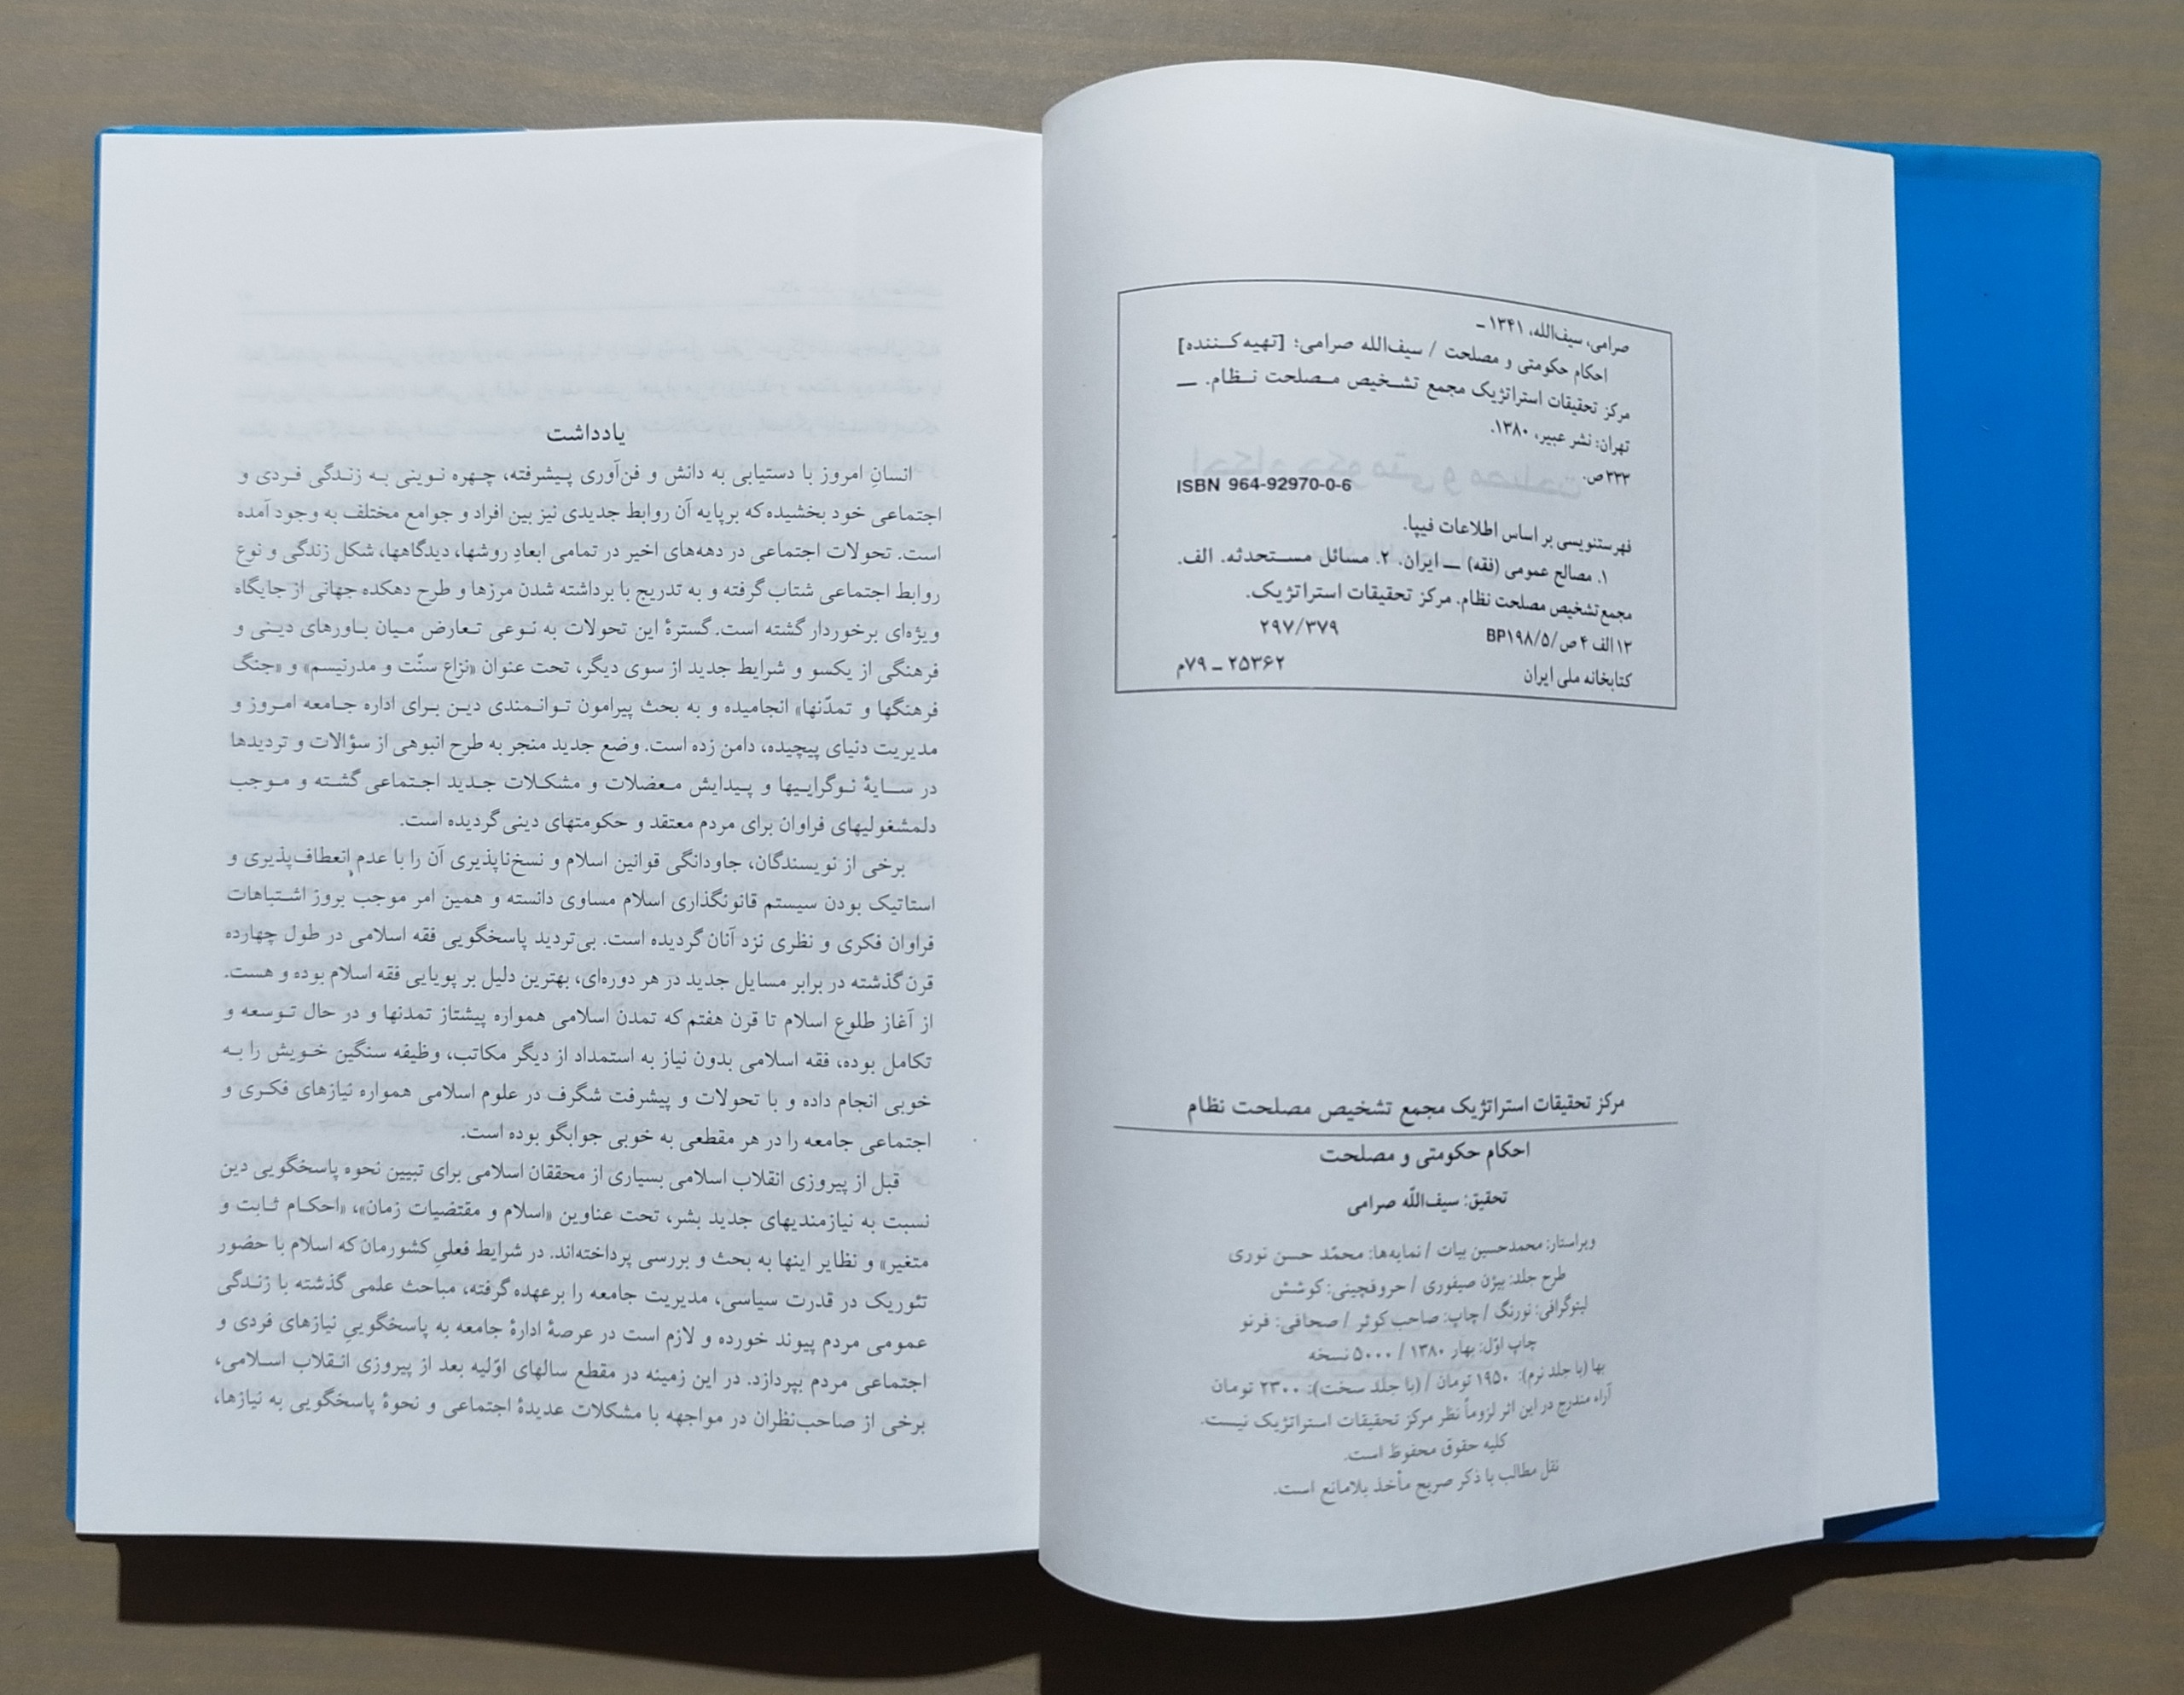 صرامی، سیف‌الله، ۱۳۴۱ ـ
احکام حکومتی و مصلحت / سیف‌الله صرامی؛ [تهیه‌کننده]
مرکز تحقیقات استراتژیک مجمع تشخیص مصلحت نظام. ـــ
تهران: نشر عبیر، ۱۳۸۰.
۳۳۳ص.
ISBN 964-92970-0-6
فهرستنویسی بر اساس اطلاعات فیپا.
۱. مصالح عمومی (فقه) ـــ ایران. ۲. مسائل مستحدثه. الف.
مجمع تشخیص مصلحت نظام. مرکز تحقیقات استراتژیک.
۱۳الف ۴ص/BP۱۹۸/۵ ۲۹۷/۳۷۹
کتابخانه ملی ایران ۲۵۳۶۲ ـ ۷۹م
مرکز تحقیقات استراتژیک مجمع تشخیص مصلحت نظام
احکام حکومتی و مصلحت
تحقیق: سیف‌اللّه صرامی
ویراستار: محمدحسین بیات / نمایه‌ها: محمّد حسن نوری
طرح جلد: بیژن صیفوری / حروفچینی: کوشش
لیتوگرافی: نورنگ / چاپ: صاحب‌کوثر / صحافی: فرنو
چاپ اوّل: بهار ۱۳۸۰ / ۵۰۰۰ نسخه
بها (با جلد نرم): ۱۹۵۰ تومان / (با جلد سخت): ۲۳۰۰ تومان
آراء مندرج در این اثر لزوماً نظر مرکز تحقیقات استراتژیک نیست.
کلیه حقوق محفوظ است.
نقل مطالب با ذکر صریح مأخذ بلامانع است.
یادداشت
انسانِ امروز با دستیابی به دانش و فن‌آوری پیشرفته، چهره نوینی به زندگی فردی و
اجتماعی خود بخشیده که برپایه آن روابط جدیدی نیز بین افراد و جوامع مختلف به وجود آمده
است. تحولات اجتماعی در دهه‌های اخیر در تمامی ابعادِ روشها، دیدگاهها، شکل زندگی و نوع
روابط اجتماعی شتاب گرفته و به تدریج با برداشته شدن مرزها و طرح دهکده جهانی از جایگاه
ویژه‌ای برخوردار گشته است. گسترهٔ این تحولات به نوعی تعارض میان باورهای دینی و
فرهنگی از یکسو و شرایط جدید از سوی دیگر، تحت عنوان «نزاع سنّت و مدرنیسم» و «جنگ
فرهنگها و تمدّنها» انجامیده و به بحث پیرامون توانمندی دین برای اداره جامعه امروز و
مدیریت دنیای پیچیده، دامن زده است. وضع جدید منجر به طرح انبوهی از سؤالات و تردیدها
در سایهٔ نوگراییها و پیدایش معضلات و مشکلات جدید اجتماعی گشته و موجب
دلمشغولیهای فراوان برای مردم معتقد و حکومتهای دینی گردیده است.
برخی از نویسندگان، جاودانگی قوانین اسلام و نسخ‌ناپذیری آن را با عدم انعطاف‌پذیری و
استاتیک بودن سیستم قانونگذاری اسلام مساوی دانسته و همین امر موجب بروز اشتباهات
فراوان فکری و نظری نزد آنان گردیده است. بی‌تردید پاسخگویی فقه اسلامی در طول چهارده
قرن گذشته در برابر مسایل جدید در هر دوره‌ای، بهترین دلیل بر پویایی فقه اسلام بوده و هست.
از آغاز طلوع اسلام تا قرن هفتم که تمدن اسلامی همواره پیشتاز تمدنها و در حال توسعه و
تکامل بوده، فقه اسلامی بدون نیاز به استمداد از دیگر مکاتب، وظیفه سنگین خویش را به
خوبی انجام داده و با تحولات و پیشرفت شگرف در علوم اسلامی همواره نیازهای فکری و
اجتماعی جامعه را در هر مقطعی به خوبی جوابگو بوده است.
قبل از پیروزی انقلاب اسلامی بسیاری از محققان اسلامی برای تبیین نحوه پاسخگویی دین
نسبت به نیازمندیهای جدید بشر، تحت عناوین «اسلام و مقتضیات زمان»، «احکام ثابت و
متغیر» و نظایر اینها به بحث و بررسی پرداخته‌اند. در شرایط فعلیِ کشورمان که اسلام با حضور
تئوریک در قدرت سیاسی، مدیریت جامعه را برعهده گرفته، مباحث علمی گذشته با زندگی
عمومی مردم پیوند خورده و لازم است در عرصهٔ ادارهٔ جامعه به پاسخگوییِ نیازهای فردی و
اجتماعی مردم بپردازد. در این زمینه در مقطع سالهای اوّلیه بعد از پیروزی انقلاب اسلامی،
برخی از صاحب‌نظران در مواجهه با مشکلات عدیدهٔ اجتماعی و نحوهٔ پاسخگویی به نیازها،